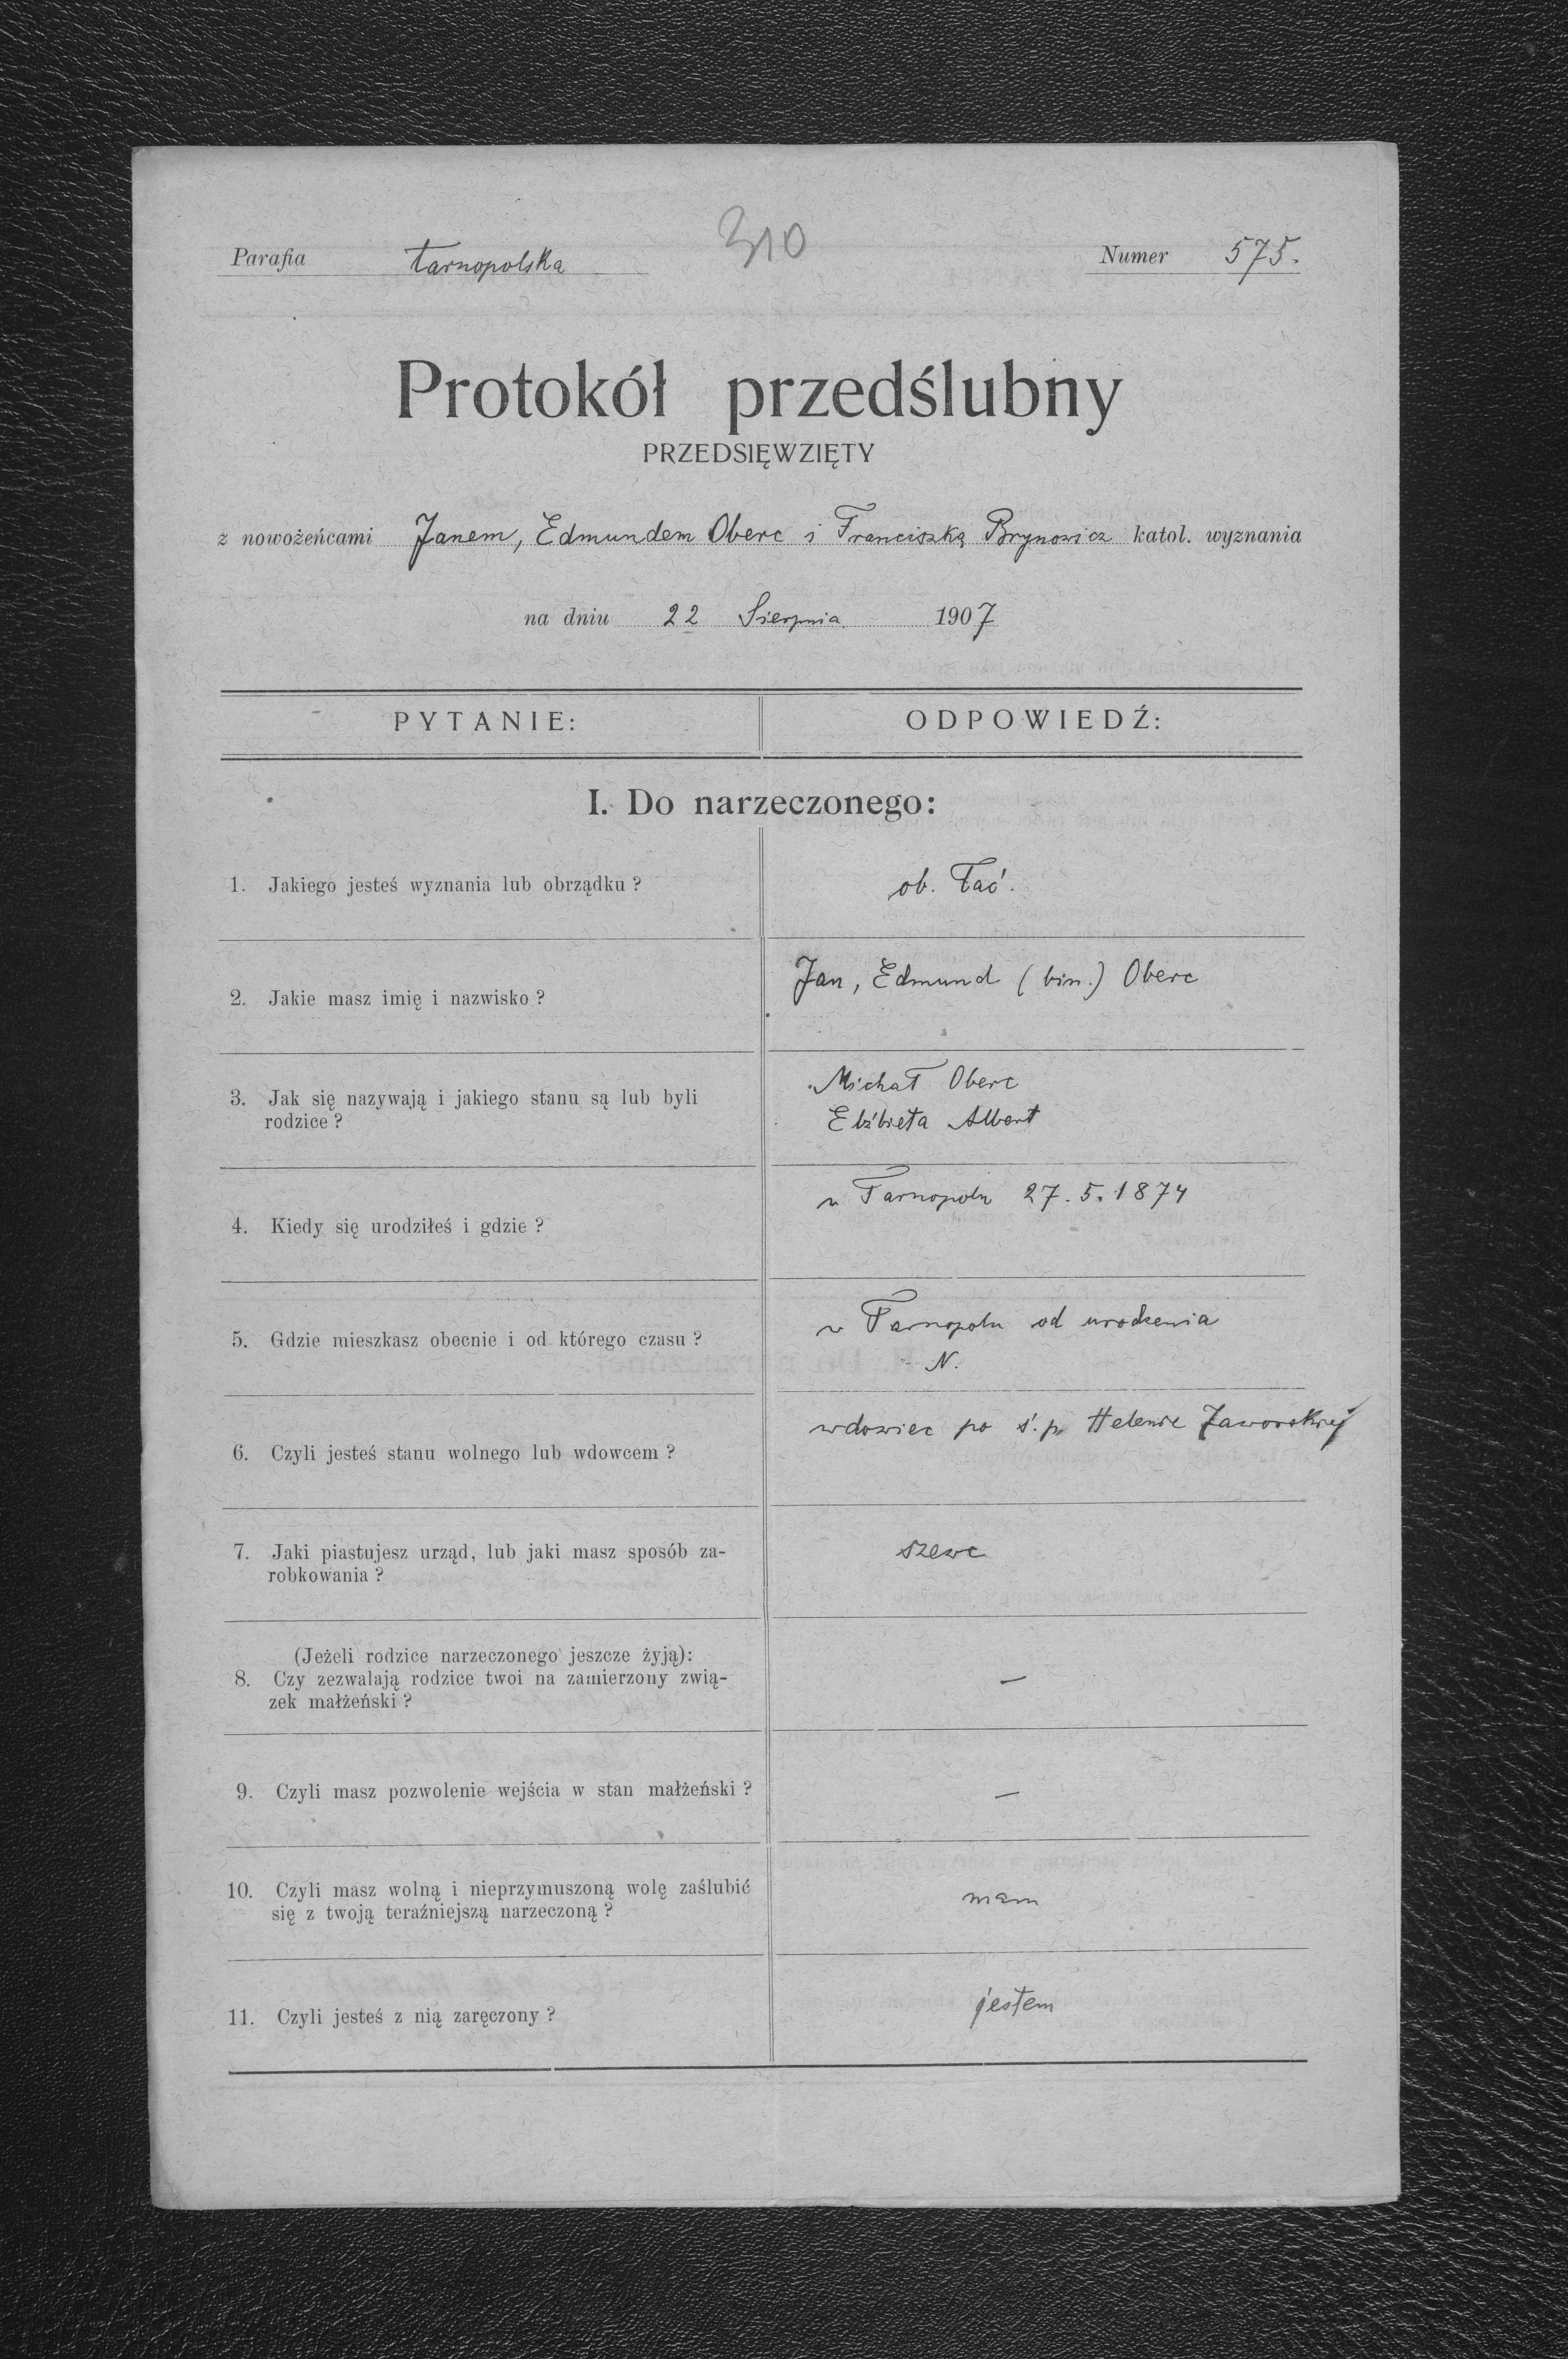 310
Parafia tarnopolska Numer 575.
Protokół przedślubny
PRZEDSIĘWZIĘTY
z nowożeńcami Janem, Edmundem Oberc i Franciszką Brynowicz katol. wyznania
na dniu 22 Sierpnia 1907
PYTANIE: ODPOWIEDŹ:
I. Do narzeczonego:
1. Jakiego jesteś wyznania lub obrządku? ob. łać.
2. Jakie masz imię i nazwisko? Jan, Edmund (bin.) Oberc
3. Jak się nazywają i jakiego stanu są lub byli Michał Oberc
rodzice? Elżbieta Albert
4. Kiedy się urodziłeś i gdzie? w Tarnopolu 27.5.1874
5. Gdzie mieszkasz obecnie i od którego czasu? w Tarnopolu od urodzenia
N.
6. Czyli jesteś stanu wolnego lub wdowcem? wdowiec po ś.p. Helenie Jaworskiej
7. Jaki piastujesz urząd, lub jaki masz sposób za- szewc
robkowania?
(Jeżeli rodzice narzeczonego jeszcze żyją):
8. Czy zezwalają rodzice twoi na zamierzony zwią- —
zek małżeński?
9. Czyli masz pozwolenie wejścia w stan małżeński? —
10. Czyli masz wolną i nieprzymuszoną wolę zaślubić mam
się z twoją teraźniejszą narzeczoną?
11. Czyli jesteś z nią zaręczony? jestem